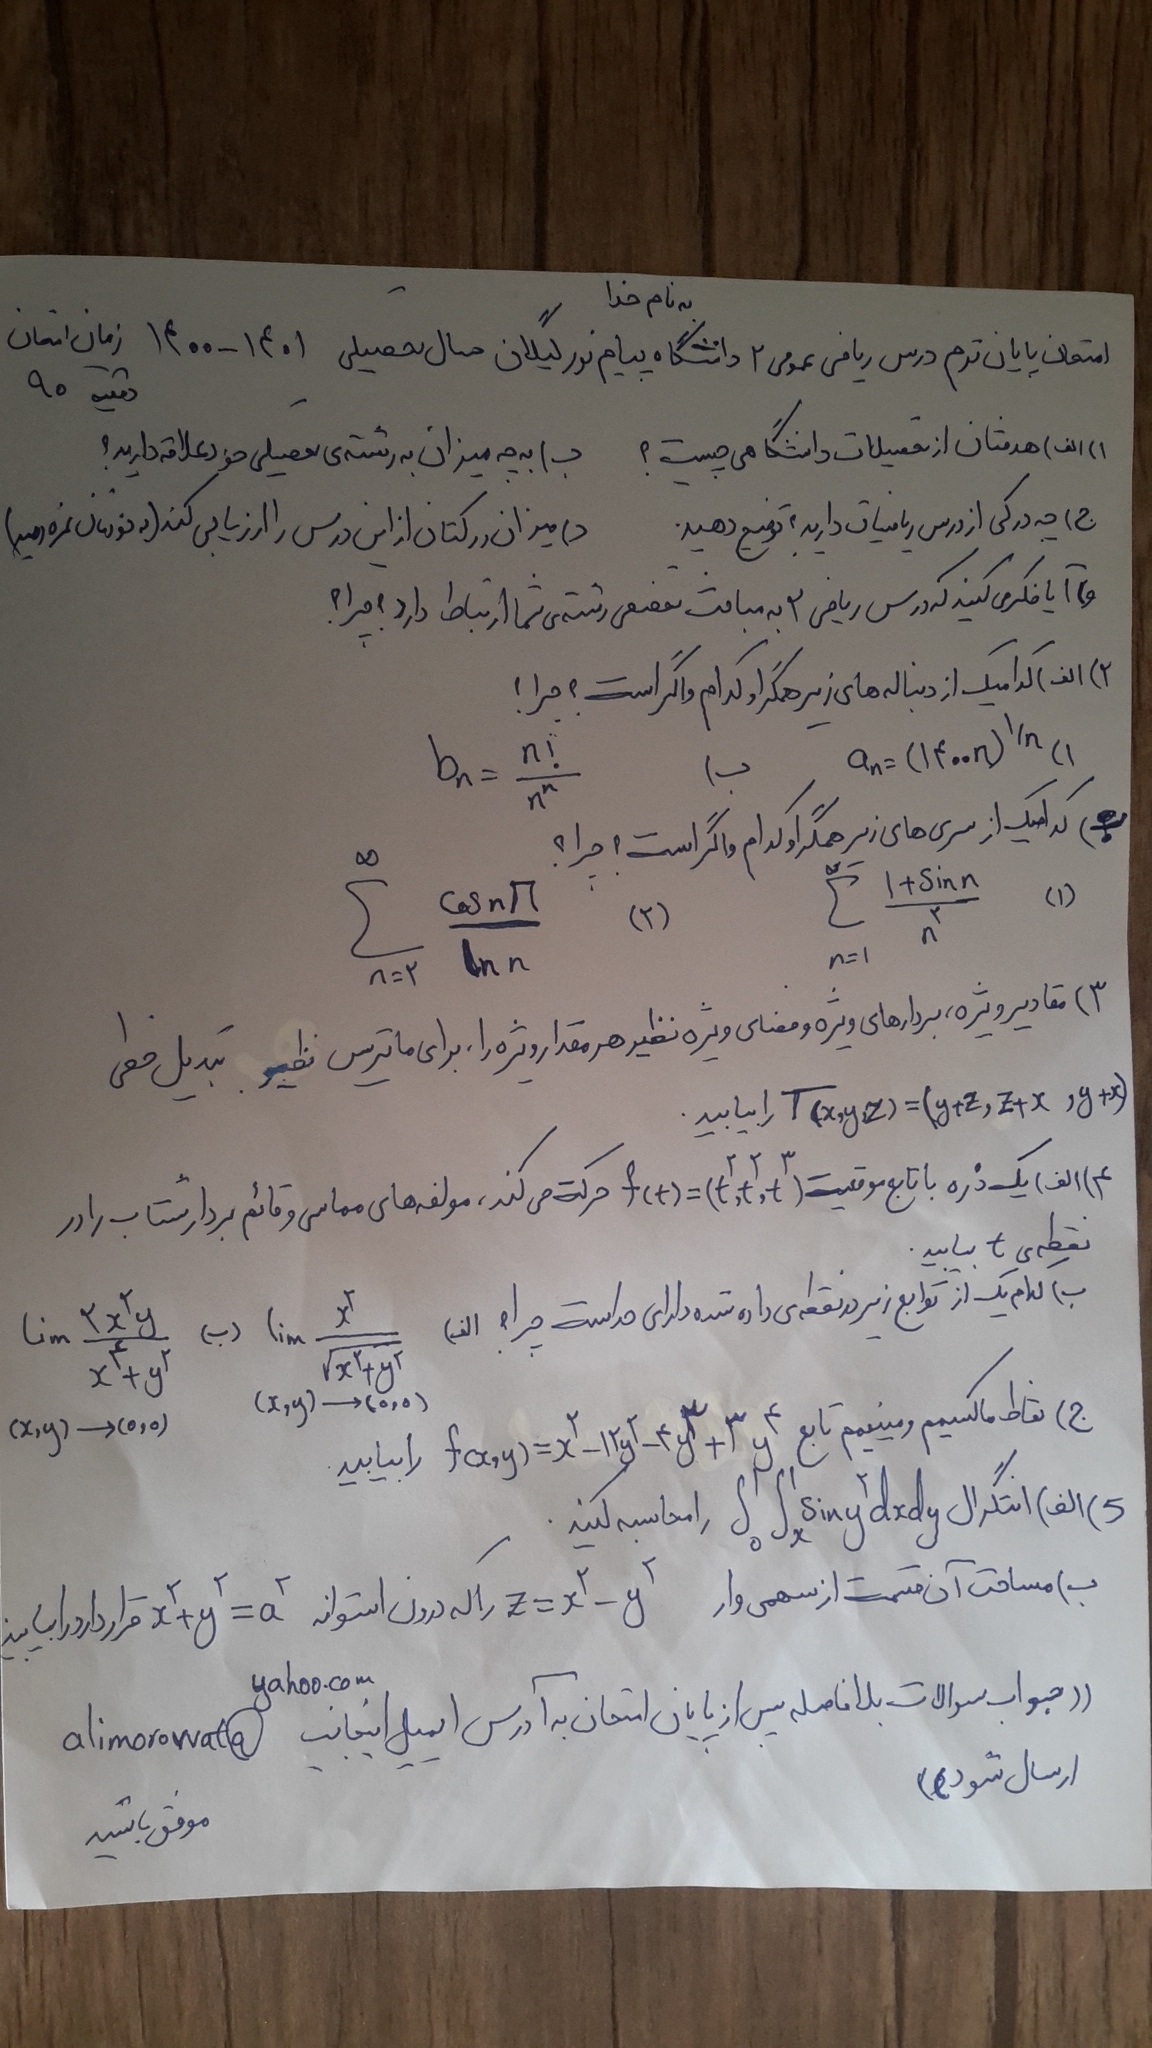 به نام خدا
امتحان پایان ترم درس ریاضی عمومی ۲ دانشگاه پیام نور گیلان سال تحصیلی ۱۴۰۱-۱۴۰۰ زمان امتحان
۹۰ دقیقه
۱) الف) هدفتان از تحصیلات دانشگاهی چیست؟ ب) به چه میزان به رشته‌ی تحصیلی خود علاقه دارید؟
ج) چه درکی از درس ریاضیات دارید؟ توضیح دهید. د) میزان درکتان از این درس را ارزیابی کنید (به خودتان نمره دهید)
و) آیا فکر می کنید که درس ریاضی ۲ به مباحث تخصصی رشته‌ی شما ارتباط دارد؟ چرا؟
۲) الف) کدامیک از دنباله های زیر همگرا و کدام واگراست؟ چرا؟
۱) aₙ = (۱۴۰۰n)^{1/n} ب) bₙ = n!/nⁿ
ب) کدامیک از سری های زیر همگرا و کدام واگراست؟ چرا؟
(۱) ∑_{n=1}^{∞} (1+sin n)/n^۲ (۲) ∑_{n=۲}^{∞} cos nπ / ln n
۳) مقادیر ویژه، بردارهای ویژه و فضای ویژه نظیر هر مقدار ویژه را، برای ماتریس نظیر تبدیل خطی
T(x,y,z) = (y+z, z+x, y+x) را بیابید.
۴) الف) یک ذره با تابع موقعیت f(t) = (t^۲, t^۲, t^۳) حرکت می کند، مولفه های مماسی و قائم بردار شتاب را در
نقطه‌ی t بیابید.
ب) کدام یک از توابع زیر در نقطه‌ی داده شده دارای حد است چرا؟ الف) lim_{(x,y)→(0,0)} x^۲/√(x^۲+y^۲) ب) lim_{(x,y)→(0,0)} ۲x^۲y/(x^۴+y^۲)
ج) نقاط ماکسیمم و مینیمم تابع f(x,y) = x^۲ - ۱۲y^۲ - ۴y^۳ + ۳y^۴ را بیابید.
5) الف) انتگرال ∫₀^۱ ∫ₓ^۱ sin y^۲ dxdy را محاسبه کنید.
ب) مساحت آن قسمت از سهمی وار z = x^۲ - y^۲ را که درون استوانه x^۲ + y^۲ = a^۲ قرار دارد را بیابید
((جواب سوالات بلافاصله پس از پایان امتحان به آدرس ایمیل اینجانب alimorovvat@yahoo.com
ارسال شود))
موفق باشید